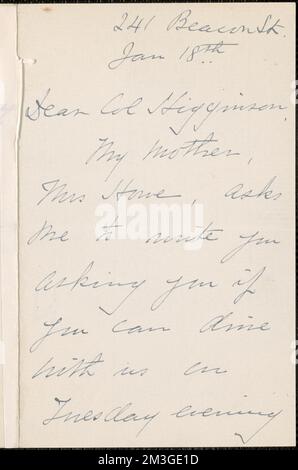 241 Beacon St.
Jan 18th
Dear Col Higginson,
My mother,
Mrs Howe, asks
me to write you
asking you if
you can dine
with us on
Tuesday evening
alamy
2M3GE1D